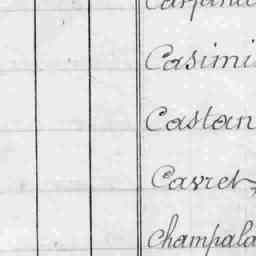 Casimi
Castan
Cavret
Champala